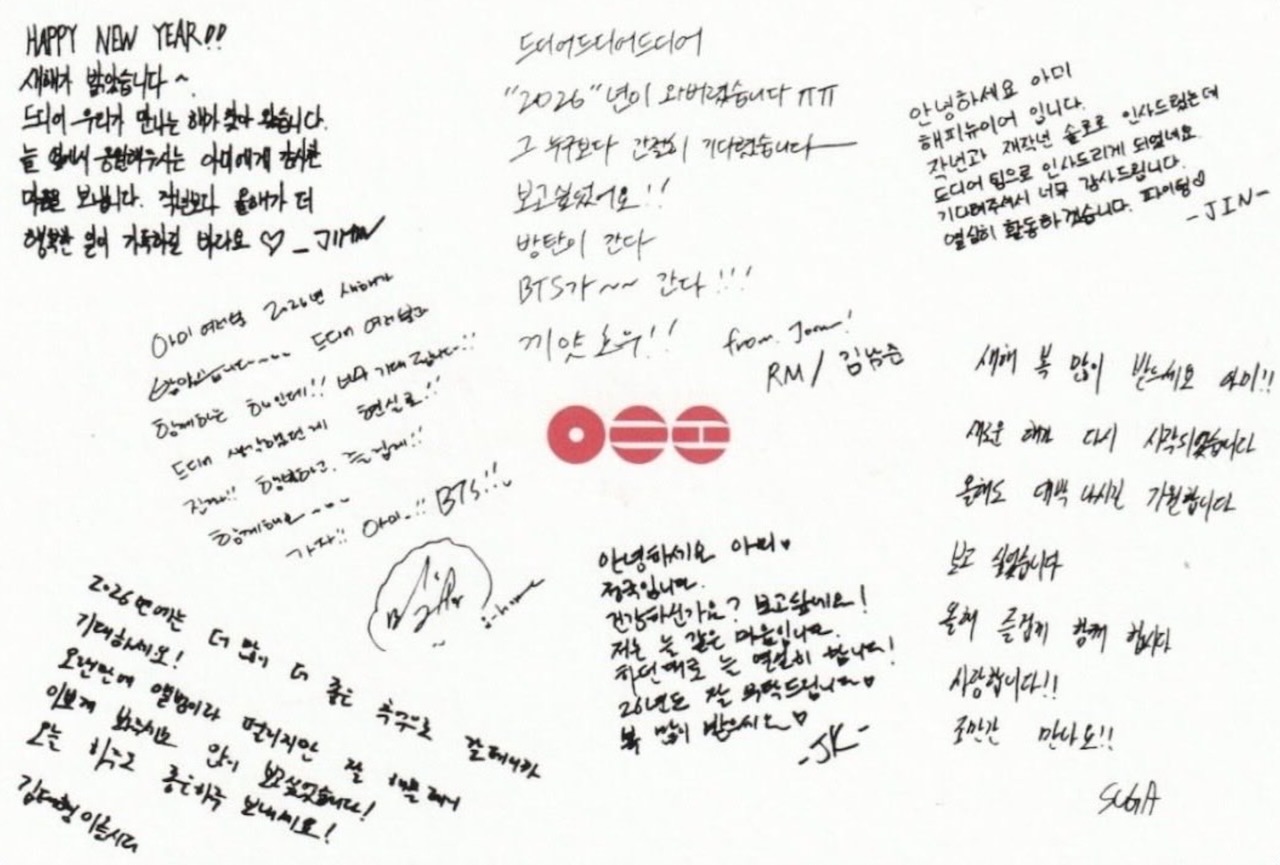 HAPPY NEW YEAR!!
새해가 밝았습니다~.
드디어 우리가 만나는 해가 찾아 왔습니다.
늘 옆에서 응원해주시는 아미에게 감사한
마음을 보냅니다. 작년보다 올해가 더
행복한 일이 가득하길 바라요 ♡ - JIMIN
드디어드디어드디어
"2026"년이 와버렸습니다 ㅠㅠ
그 누구보다 간절히 기다렸습니다—
보고싶었어요!!
방탄이 간다
BTS가~~ 간다!!!
끼얏호우!!
from. Joon!
RM / 김남준
안녕하세요 아미
해피뉴이어 입니다.
작년과 재작년 솔로로 인사드렸는데
드디어 팀으로 인사드리게 되었네요
기다려주셔서 너무 감사드립니다.
열심히 활동하겠습니다. 파이팅♡
-JIN-
아미 여러분 2026년 새해가
밝았습니다~~~ 드디어 여러분과
함께하는 해인데!! 너무 기대됩니다!!
드디어 생각했던게 현실로!!
진짜!! 행복하고, 즐겁게!!
함께해요~~~
가자!! 아미!! BTS!!
j-hope
새해 복 많이 받으세요 아미!!
새로운 해가 다시 시작되었습니다
올해도 대박 나시길 기원합니다
보고 싶었습니다
올해 즐겁게 함께 합시다
사랑합니다!!
조만간 만나요!!
SUGA
안녕하세요 아미♥
정국입니다.
건강하신가요? 보고싶네요!
저는 늘 같은 마음입니다.
하던대로 늘 열심히 합니다!
26년도 잘 부탁드립니다♡
복 많이 받으시오♡
-JK-
2026년에는 더 많이 더 좋은 쪽으로 갈테니까
기대하세요!
오랜만에 앨범이라 떨리지만 잘
이쁘게 봐주시요 많이 보고싶었습니다!
오늘 하루도 좋은하루 보내세요!
김태형